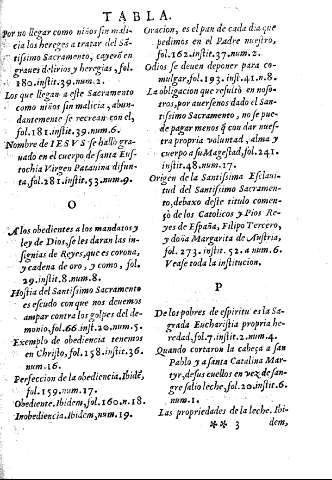 TABLA.
Por no llegar como niños sin mali-
cia los hereges a tratar del Sã-
tissimo Sacramento, cayerõ en
graues delirios y heregias, fol.
180. instit. 39. num. 2.
Los que llegan a este Sacramēto
como niños sin malicia, abun-
dantemente se recrean con el,
fol. 181. instit. 39. num. 6.
Nombre de IESVS se hallo gra-
uado en el cuerpo de santa Eus-
tochia Virgen Patauina difun-
ta, fol. 281. instit. 53. num. 9.
O
A los obedientes a los mandatos y
ley de Dios, se les daran las in-
signias de Reyes, que es corona,
y cadena de oro, y como, fol.
29. instit. 8. num. 8.
Hostia del Santissimo Sacramento
es escudo con que nos deuemos
ampar contra los golpes del de-
monio, fol. 66. inst. 20. num. 5.
Exemplo de obediencia tenemos
en Christo, fol. 158. instit. 36.
num. 16.
Perfeccion de la obediencia. Ibidē,
fol. 159. num. 17.
Obediente. Ibidem, fol. 160. n. 18.
Inobediencia. Ibidem, num. 19.
Oracion, es el pan de cada dia que
pedimos en el Padre nuestro,
fol. 162. instit. 37. num. 2.
Odios se deuen deponer para co-
mulgar, fol. 193. inst. 41. n. 8.
La obligacion que resultò en noso-
tros, por auersenos dado el San-
tissimo Sacramento, no se pue-
de pagar menos q̃ con dar nues-
tra propria voluntad, alma y
cuerpo a su Magestad, fol. 241.
instit. 48. num. 17.
Origen de la Santissima Esclaui-
tud del Santissimo Sacramen-
to, debaxo deste titulo comen-
çò de los Catolicos y Pios Re-
yes de España, Filipo Tercero,
y doña Margarita de Austria,
fol. 273. instit. 52. a num. 6.
Vease toda la institucion.
P
De los pobres de espiritu es la Sa-
grada Eucharistia propria he-
redad, fol. 7. instit. 2. num. 4.
Quando cortaron la cabeça a san
Pablo y a santa Catalina Mar-
tyr, de sus cuellos en vez de san-
gre salio leche, fol. 20. instit. 6.
num. 1.
Las propriedades de la leche. Ibi-
** 3 dem,